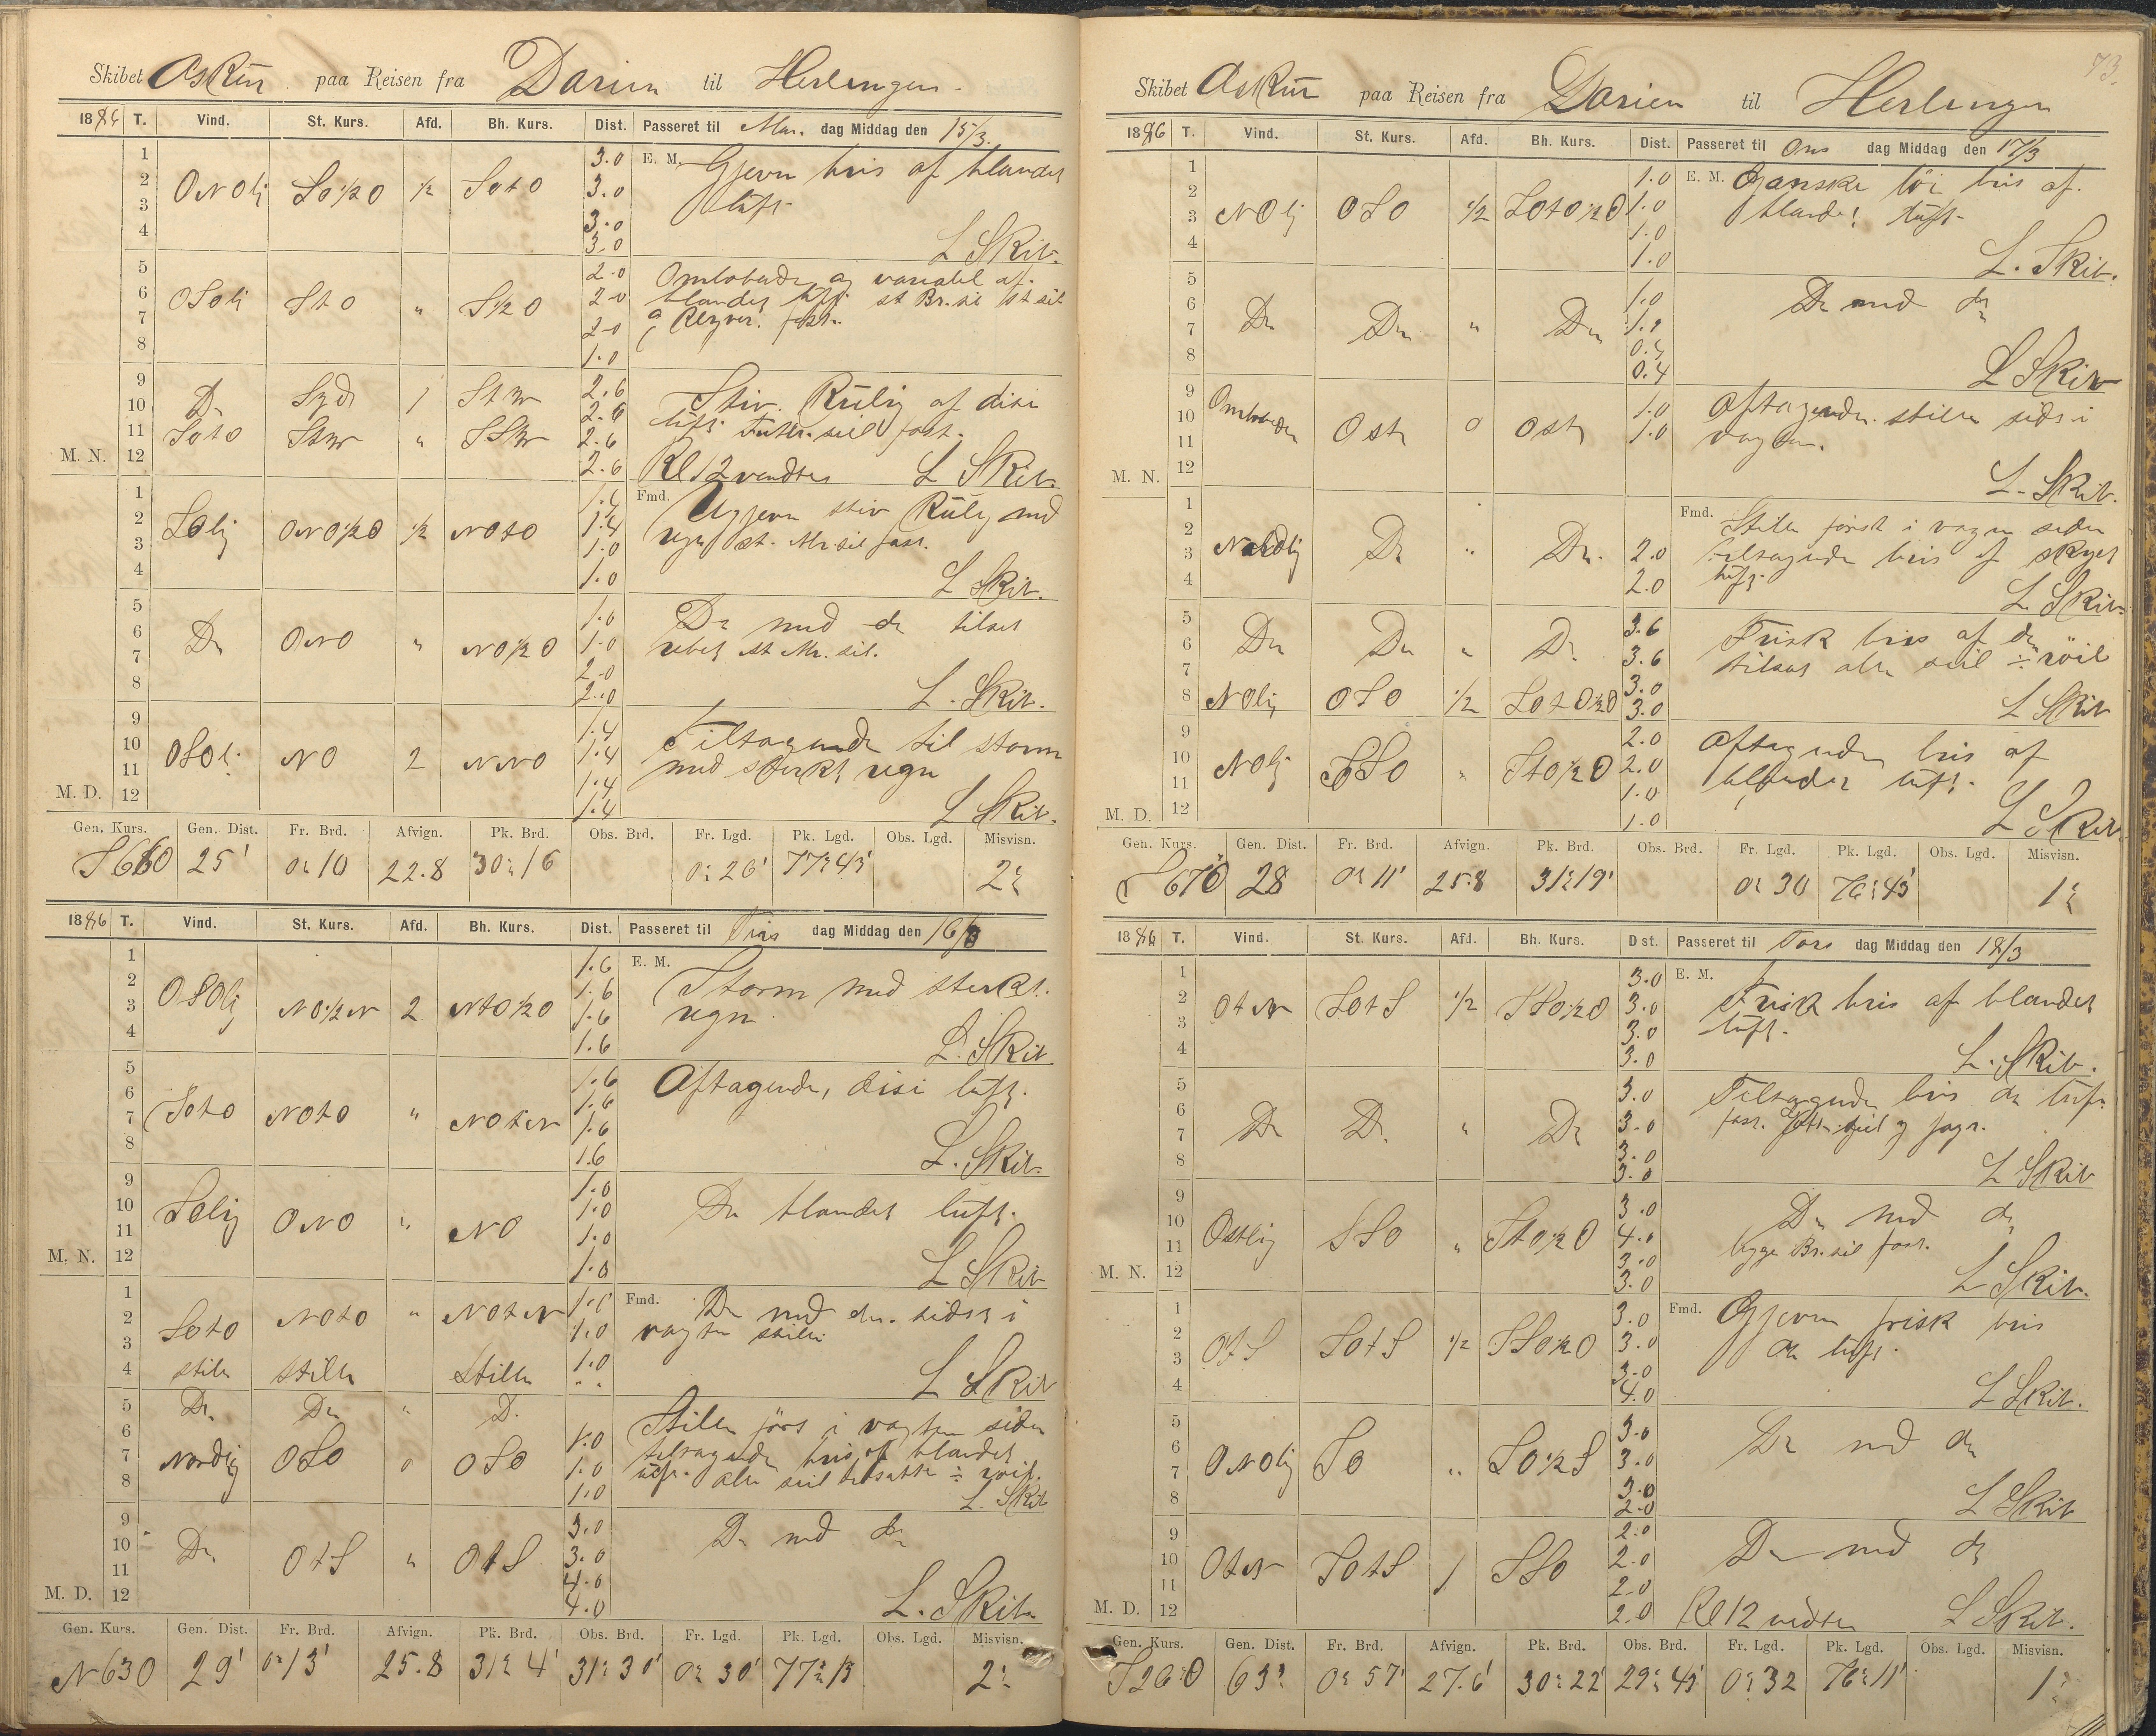 Skibet Askur paa Reisen fra Darien til Herlingen
1886 T. Vind. St. Kurs. Afd. Bh. Kurs. Dist. Passeret til Man. dag Middag den 15/3
1 3.0 E. M. Gjevn bris af blandet
2 ONOlig SO½O ½ SOtO 3.0 luft
3 3.0
4 3.0 L. Skib.
5 2.0 Omløbende og variabel af
6 OSOlig StO " S½O 2.0 blandet luft. st Br.sil
7 2.0
8 1.0
9 Do Syd 1 StW 2.6 Stiv Kuling af disi
10 2.6 luft
11 SOtO StW " SSW 2.6
M. N. 12 2.6 Kl 12 vendtes L Skib.
1 Fmd. Ugjevn stiv Kuling med
2 SOlig ONO½O ½ NOtO 1.4 regn st. Mr.sil fast.
3 1.0
4 1.0 L Skib.
5 1.0 Do med do tilsat
6 Do ONO " NO½O 1.0 rebet st Mr. sil.
7 2.0
8 2.0 L. Skib.
9 1.4 Tiltagende til storm
10 OSOl. NO 2 NNO 1.4 med sterkt regn
11 1.4
M. D. 12 1.4 L Skib.
Gen. Kurs. Gen. Dist. Fr. Brd. Afvign. Pk. Brd. Obs. Brd. Fr. Lgd. Pk. Lgd. Obs. Lgd. Misvisn.
S66O 25' 0°10 22.8 30°16 0°26' 77°43' 2°
1886 T. Vind. St. Kurs. Afd. Bh. Kurs. Dist. Passeret til Tirs dag Middag den 16/3
1 1.6 E. M.
2 OSOlig NO½N 2 NtO½O 1.6 Storm med sterkt
3 1.6 regn
4 1.6 L. Skib.
5 1.6 Aftagende, disi luft.
6 SOtO NOtO " NOtN 1.6
7 1.6
8 1.6 L. Skib.
9 1.0
10 SOlig ONO " NO 1.0 Do blandet luft.
11 1.0
M. N. 12 1.0 L Skib
1 Fmd. Do med do. sidst i
2 SOtO NOtO " NOtN 1.0 vagten stille
3 1.0
4 stille stille Stille " L Skib
5 Do Do " D. Stille først i vagten siden
6 1.0 tiltagende bris af blandet
7 Nordlig OSO 0 OSO 1.0 luft. alle seil tilsatte ÷ roil.
8 1.0 L. Skib
9 3.0 Do med do
10 Do OtS " OtS 3.0
11 4.0
M. D. 12 4.0 L. Skib.
Gen. Kurs. Gen. Dist. Fr. Brd. Afvign. Pk. Brd. Obs. Brd. Fr. Lgd. Pk. Lgd. Obs. Lgd. Misvisn.
N63O 29' 0°13' 25.8 31°4' 31°30' 0°30' 77°13 2°
73.
Skibet Askur paa Reisen fra Darien til Herlingen
1886 T. Vind. St. Kurs. Afd. Bh. Kurs. Dist. Passeret til Ons dag Middag den 17/3
1 1.0 E. M. Ganske lör bris af
2 1.0 blandet luft
3 NOlig OSO ½ SOtO½O 1.0
4 1.0 L. Skib.
5 1.0
6 Do Do " Do Do med do
7 0.4
8 0.4 L Skib
9 1.0 Aftagende stille sidst i
10 Omløbende Ost 0 Ost 1.0 vagten.
11
M. N. 12 L. Skib.
1 Fmd.
2 Stille först i vagten siden
3 Nordlig Do " Do. 2.0 tiltagende bris af skyet
4 2.0 luft. L. Skib.
5 3.6 Frisk bris af do
6 Do Do " Do 3.6 tilsat alle seil ÷ röil
7 3.0
8 NOlig OSO ½ SOtO½O 3.0 L Skib
9 2.0 Aftagende bris af
10 NOlig SSO " StO½O 2.0 blandet luft.
11 1.0
M. D. 12 1.0 L Skib.
Gen. Kurs. Gen. Dist. Fr. Brd. Afvign. Pk. Brd. Obs. Brd. Fr. Lgd. Pk. Lgd. Obs. Lgd. Misvisn.
S67O 28 0°11' 25.8 31°19' 0°30 76°43' 1°
1886 T. Vind. St. Kurs. Afd. Bh. Kurs. Dist. Passeret til Tors dag Middag den 18/3
1 3.0 E. M.
2 OtN SOtS ½ SSO½O 3.0 Frisk bris af blandet
3 3.0 luft.
4 3.0 L. Skib.
5 3.0 Tiltagende bris do luft
6 Do D. " Do 3.0 fast
7 3.0
8 3.0 L Skib
9 3.0 Do med do
10 Ostlig SSO " StO½O 4.0 begge Br.sil fast.
11 3.0
M. N. 12 3.0 L Skib.
1 3.0 Fmd. Gjevn frisk bris
2 OtS SOtS ½ SSO½O 3.0 do luft.
3 3.0
4 4.0 L Skib.
5 3.0
6 ONOlig SO " SO½S 3.0 Do med do
7 3.0
8 2.0 L Skib
9 2.0
10 OtN SOtS 1 SSO 2.0 Do med do
11 2.0
M. D. 12 2.0 Kl 12 vendte L Skib.
Gen. Kurs. Gen. Dist. Fr. Brd. Afvign. Pk. Brd. Obs. Brd. Fr. Lgd. Pk. Lgd. Obs. Lgd. Misvisn.
S26O 63' 0°57' 27.6' 30°22' 29°45' 0°32 76°11' 1°